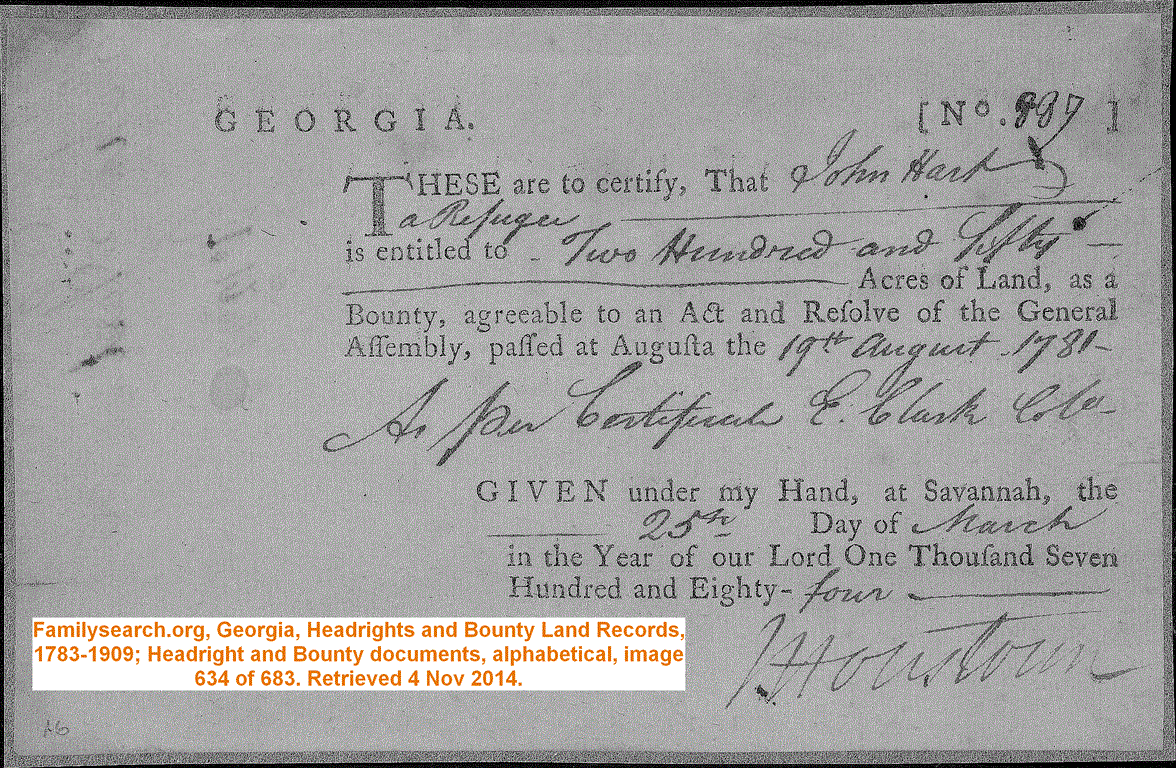 GEORGIA. [No. 997 ]
THESE are to certify, That John Hart
a Refugee
is entitled to Two Hundred and fifty
Acres of Land, as a
Bounty, agreeable to an Act and Reſolve of the General
Aſſembly, paſſed at Auguſta the 19th August 1781
As per Certificate E. Clark Colo
GIVEN under my Hand, at Savannah, the
25th Day of March
in the Year of our Lord One Thouſand Seven
Hundred and Eighty- four
J Houstoun
Familysearch.org, Georgia, Headrights and Bounty Land Records,
1783-1909; Headright and Bounty documents, alphabetical, image
634 of 683. Retrieved 4 Nov 2014.